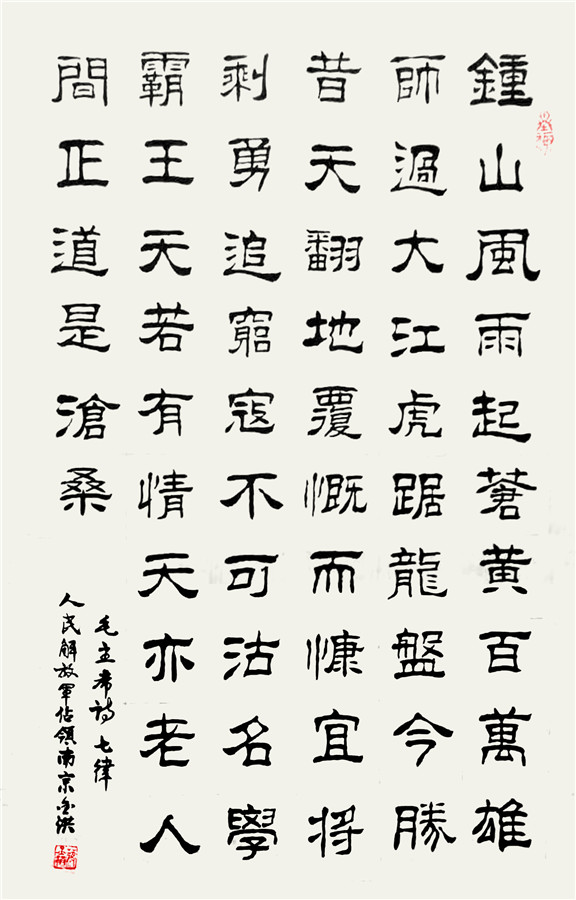 鍾山風雨起蒼黃百萬雄
師過大江虎踞龍盤今勝
昔天翻地覆慨而慷宜將
剩勇追窮寇不可沽名學
霸王天若有情天亦老人
間正道是滄桑
毛主席詩七律
人民解放軍佔領南京